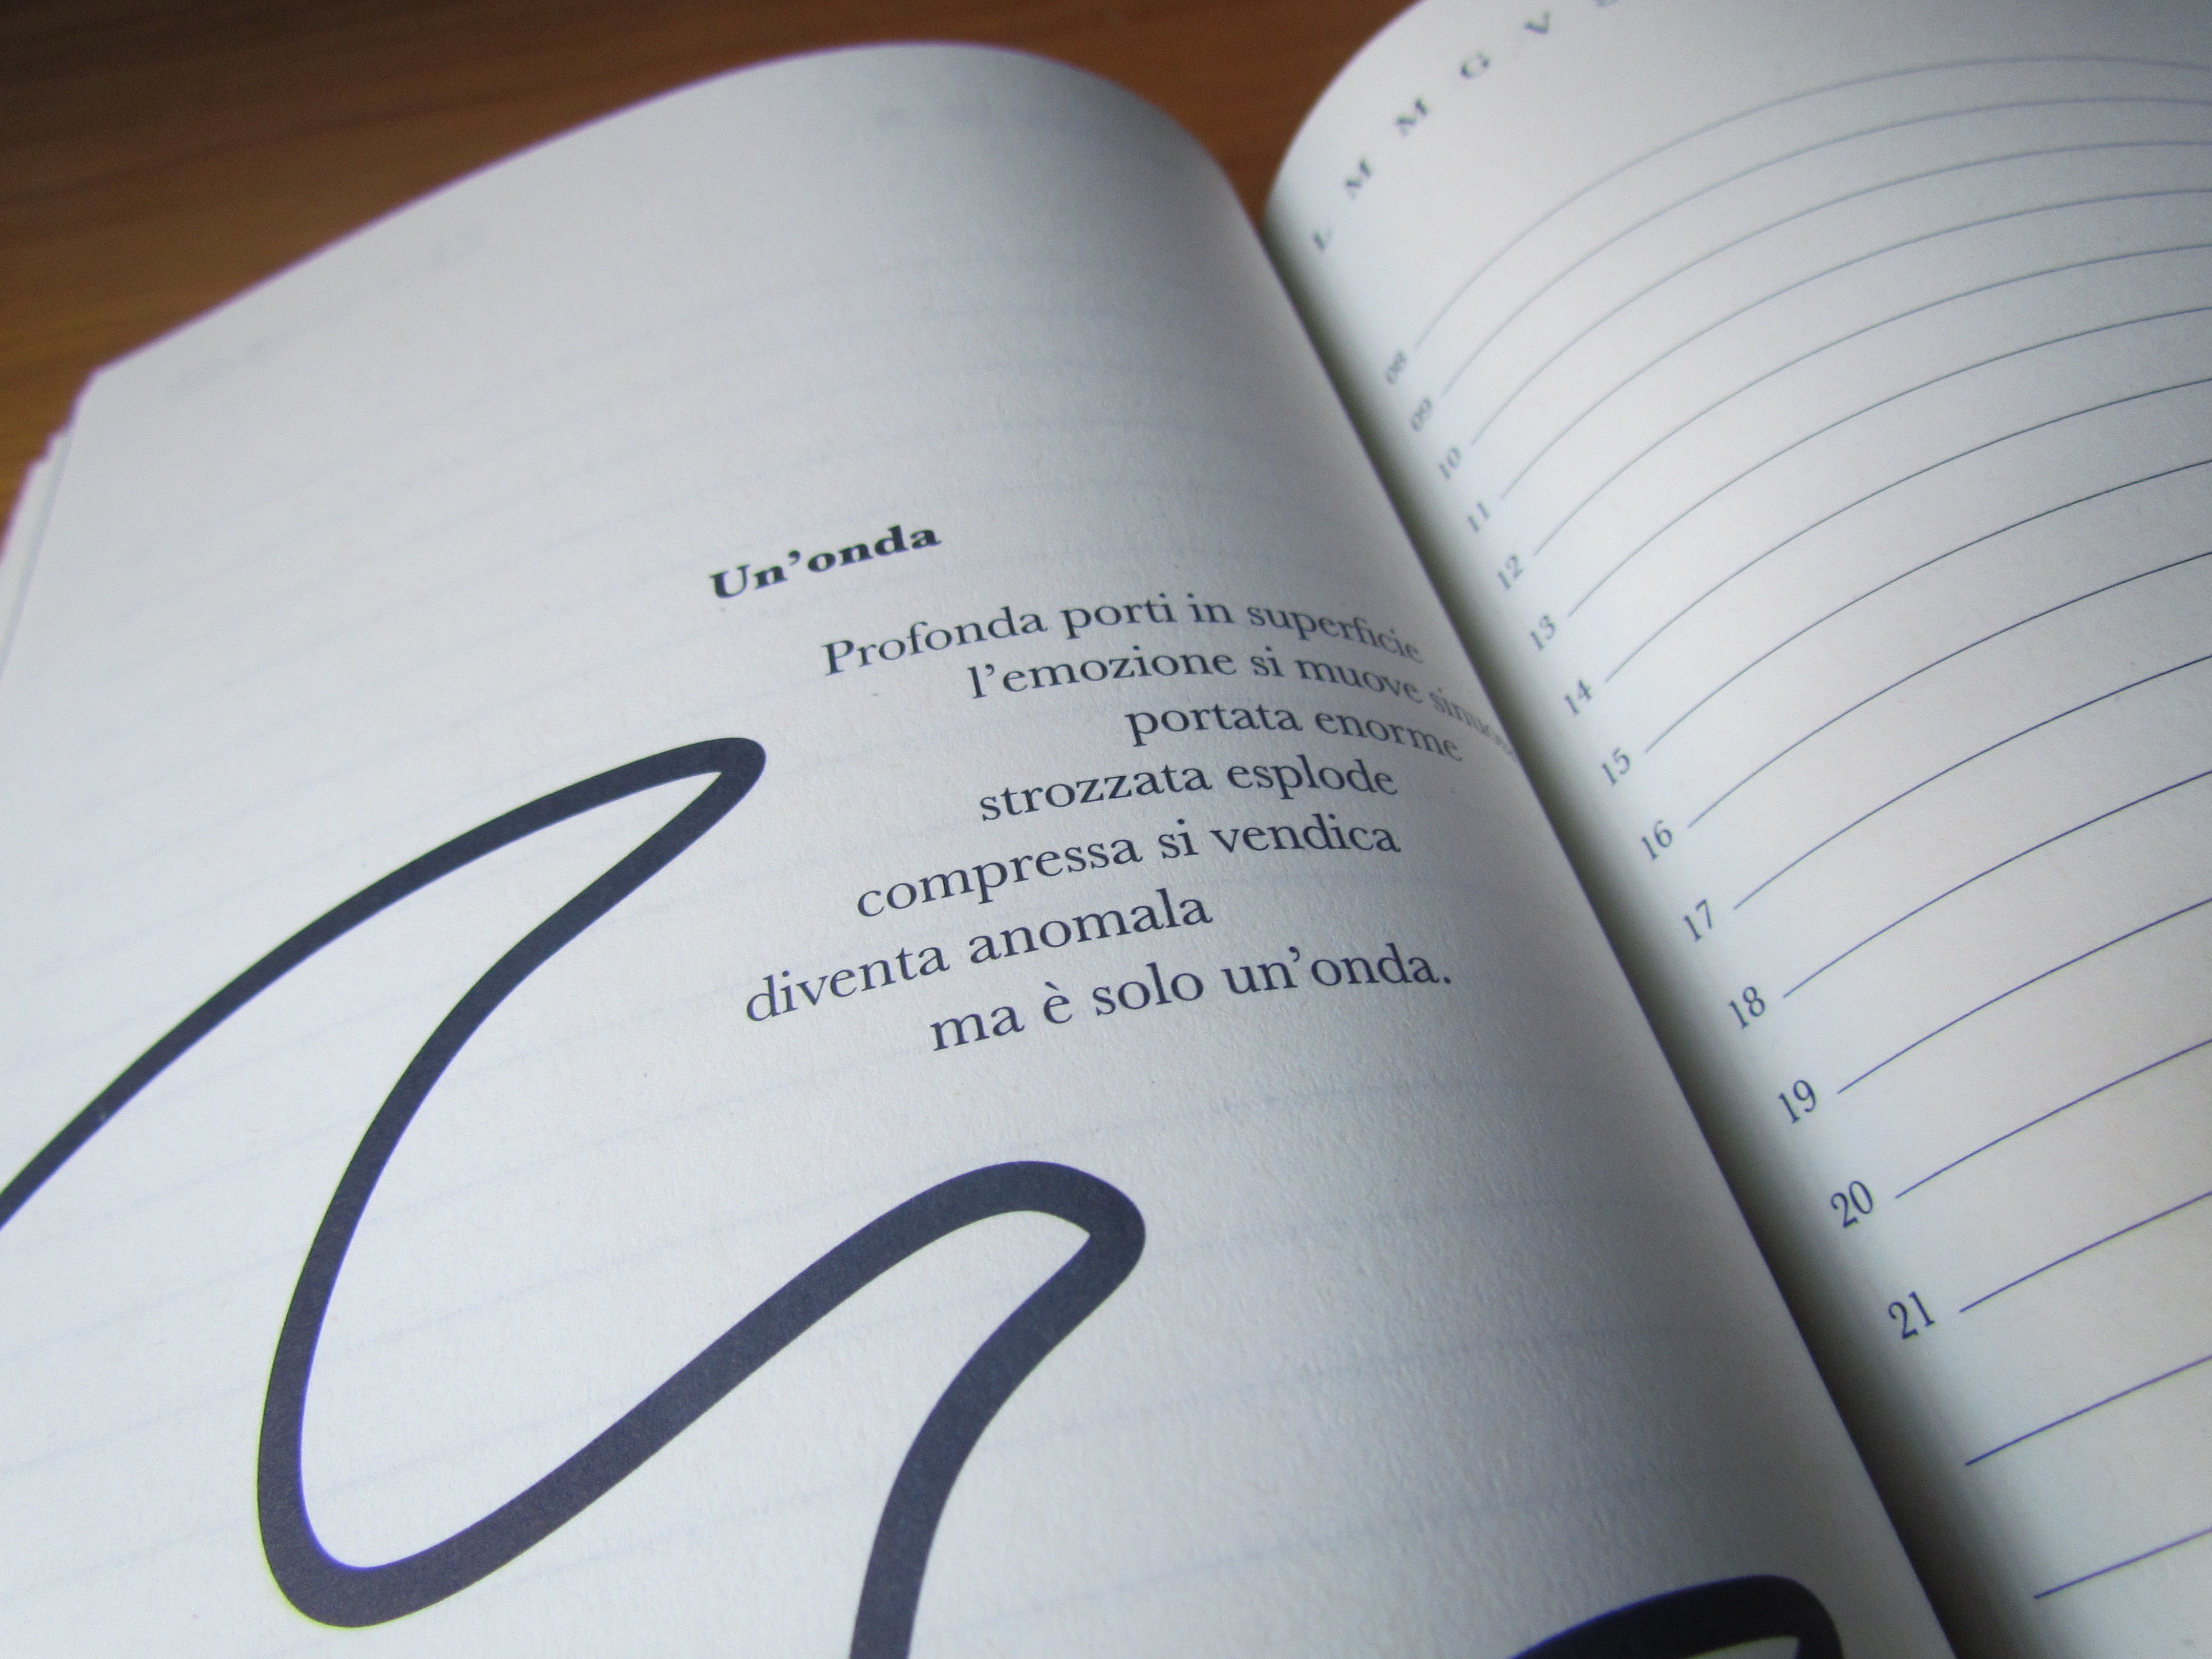 Un’onda
Profonda porti in superficie
l’emozione si muove
portata enorme
strozzata esplode
compressa si vendica
diventa anomala
ma è solo un’onda.
L M M G V
08
09
10
11
12
13
14
15
16
17
18
19
20
21